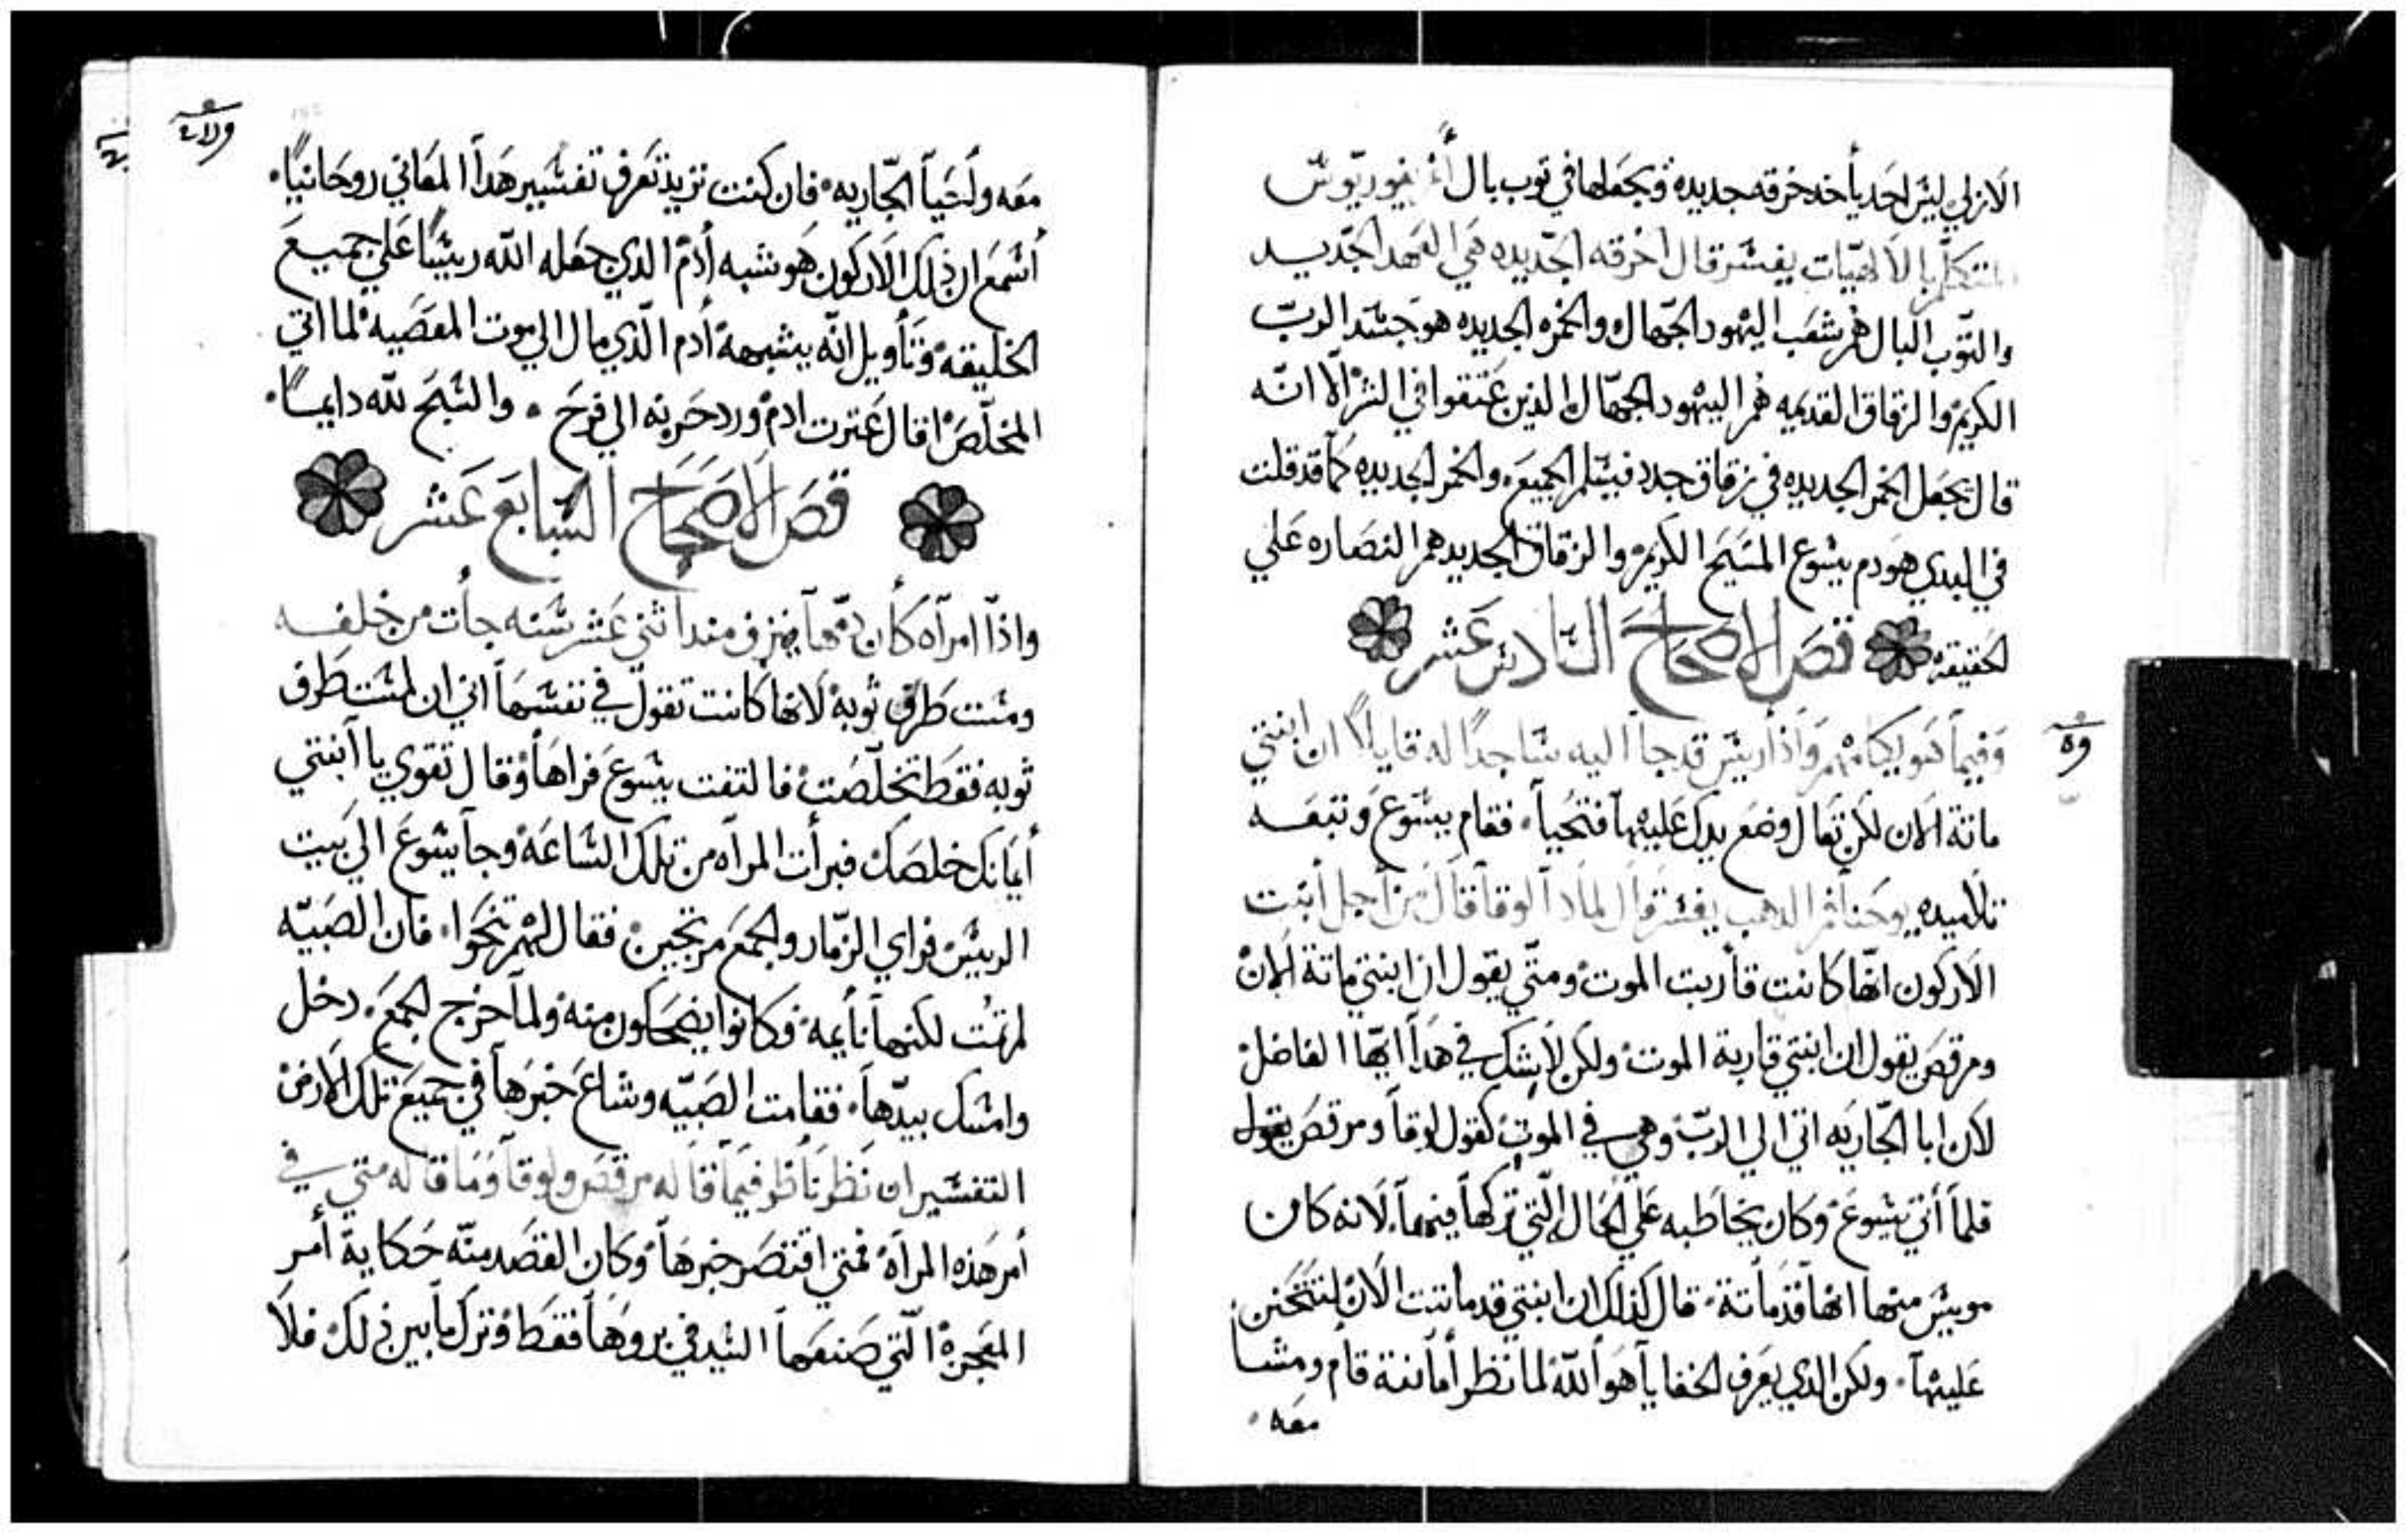 الازلي ليس احد ياخد خرقه جديده ويجعلها في توب بال
المتكلم بالالاهيات يفسر قال الخرقه الجديده هي العهد الجديد
والتوب البال هم شعب اليهود الجهال والخمره الجديده هو جسد الرب
الكريم والزقاق القديمه هم اليهود الجهال الدين عتقوا في الشر الا انه
قال تجعل الخمر الجديده في زقاق جدد فيسلم الجميع والخمر الجديده كما قد قلت
في البدي هو دم يسوع المسيح الكريم والزقاق الجديد هم النصاره علي
الحقيقه قص الاصحاح السادس عشر
وفيما هو يكلمهم واذا ريس قد جاا اليه ساجدًا له قايلاً ان ابنتي
ماتة الان لكن تعال وضع يدك عليها فتحيا، فقام يسوع وتبعه
تلاميده يوحنا فم الدهب يفسر قال لمادا لوقا قال من اجل ابنت
الاركون انها كانت قاربت الموت ومتي يقول ان ابنتي ماتة الان
ومرقص يقول ان ابنتي قاربة الموت ولكن لا يشك في هدا ايها الفاضل
لان ابا الجاريه اتي الي الرب وهي في الموت كقول لوقا ومرقص يقول
فلما أتي يسوع وكان يخاطبه علي الحال التي تركها فيها لانه كان
مويس منها انها قد ماتة، قال كذلك ان ابنتي قد ماتت الان ليتحنن
عليها، ولكن الدي يعرف الخفايا هو الله لما نظر أمانته قام ومشا
معه
معه ولحيا الجاريه، فان كنت تريد تعرف تفسير هدا المعاني روحانيًا
أسمع ان ذلك الاركون هو شبه أدم الدي جعله الله ريسًا علي جميع
الخليقه وتأويل انه يشبهه أدم الدي مال الي موت المعصيه لما اتي
المخلص اقال عترت ادم ورد حزنه الي فرح، والسبح لله دايمًا
قص الاصحاح السابع عشر
واذا امراه كأن دمها ينزف مند اثني عشر سنه جأت من خلفه
ومست طرف ثوبه لانها كانت تقول في نفسها اني ان لمست طرف
ثوبه فقط تخلصت فالتفت يسوع فراها وقال تقوي يا ابنتي
أيمانك خلصك فبرأت المراه من تلك الساعة وجا يسوع الي بيت
الريس فراي الزمار والجمع مرتجين فقال لهم تنحوا، فان الصبيه
لم تمت لكنها نأيمه فكانوا يضحكون منه ولما خرج الجمع، دخل
وامسك بيدها، فقامت الصبيه وشاع خبرها في جميع تلك الارض
التفسير ان نظر نأظر فيما قاله مرقص ولوقا وما قاله متي في
أمر هذه المراه فمتي اقتصر خبرها وكان القصد منه حكاية أمر
المعجزة التي صنعها السيد في بروها فقط وترك ما بين ذلك فلا